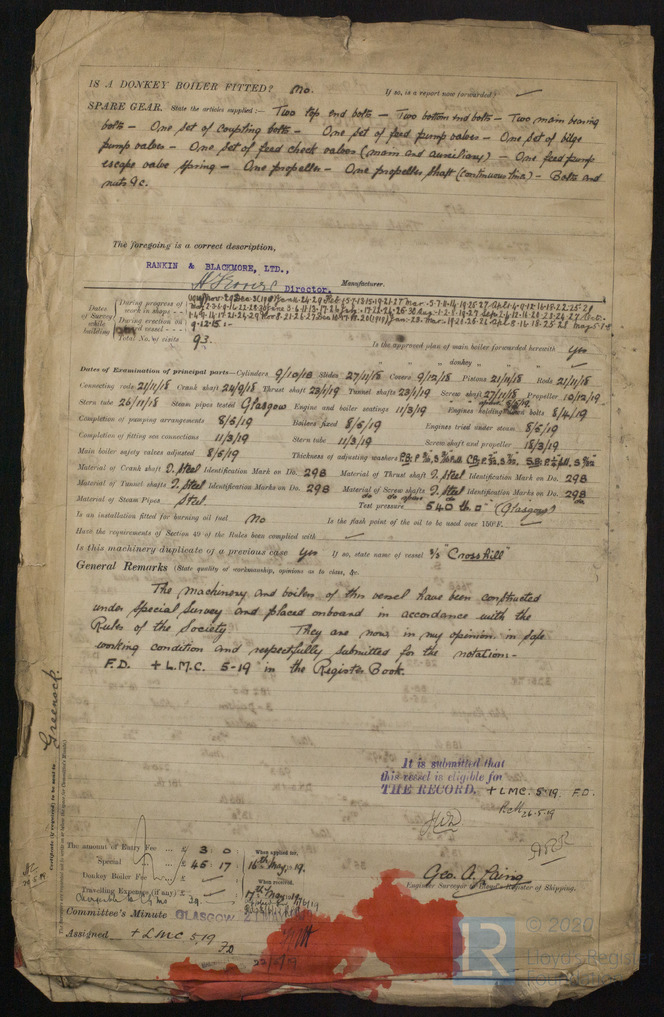 IS A DONKEY BOILER FITTED? No. If so, is a report now forwarded? —
SPARE GEAR. State the articles supplied:— Two top end bolts — Two bottom end bolts — Two main bearing
bolts — One set of coupling bolts — One set of feed pump valves — One set of bilge
pump valves — One set of feed check valves (main and auxiliary) — One feed pump
escape valve spring — One propeller — One propeller shaft (continuous liner) — Bolts and
nuts &c.
The foregoing is a correct description,
RANKIN & BLACKMORE, LTD.,
Director. Manufacturer.
Dates of Survey while building
During progress of work in shops
During erection on board vessel
Total No. of visits 93.
Is the approved plan of main boiler forwarded herewith yes
" " " donkey " "
Dates of Examination of principal parts—Cylinders 9/10/18 Slides 27/11/18 Covers 9/12/18 Pistons 21/11/18 Rods 21/11/18
Connecting rods 21/11/18 Crank shaft 24/9/18 Thrust shaft 23/1/19 Tunnel shafts 23/1/19 Screw shaft 27/11/18 Propeller 10/12/19
Stern tube 26/11/18 Steam pipes tested Glasgow Engine and boiler seatings 11/3/19 Engines holding down bolts 8/4/19
Completion of pumping arrangements 8/5/19 Boilers fixed 8/5/19 Engines tried under steam 8/5/19
Completion of fitting sea connections 11/3/19 Stern tube 11/3/19 Screw shaft and propeller 18/3/19
Main boiler safety valves adjusted 8/5/19 Thickness of adjusting washers
Material of Crank shaft I. Steel Identification Mark on Do. 298 Material of Thrust shaft I. Steel Identification Mark on Do. 298
Material of Tunnel shafts I. Steel Identification Marks on Do. 298 Material of Screw shafts I. Steel Identification Marks on Do. 298
Material of Steam Pipes Steel Test pressure 540 lb □" (Glasgow)
Is an installation fitted for burning oil fuel No Is the flash point of the oil to be used over 150°F. —
Have the requirements of Section 49 of the Rules been complied with —
Is this machinery duplicate of a previous case Yes If so, state name of vessel S/S "Crosshill"
General Remarks (State quality of workmanship, opinions as to class, &c.
The machinery and boilers of this vessel have been constructed
under special survey and placed onboard in accordance with the
Rules of the Society They are now in my opinion in safe
working condition and respectfully submitted for the notation:-
F.D. + L.M.C. 5-19 in the Register Book.
Greenock.
It is submitted that
this vessel is eligible for
THE RECORD. + LMC. 5.19. F.D.
26.5.19
The amount of Entry Fee £ 3 0
Special £ 45 17
Donkey Boiler Fee £ —
Travelling Expenses (if any) £ —
When applied for, 16th May, 19.
When received,
Geo. A. Laing
Engineer Surveyor to Lloyd's Register of Shipping.
Committee's Minute GLASGOW
Assigned + LMC 5.19
F.D.
© 2020
Lloyd's Register
Foundation
LR